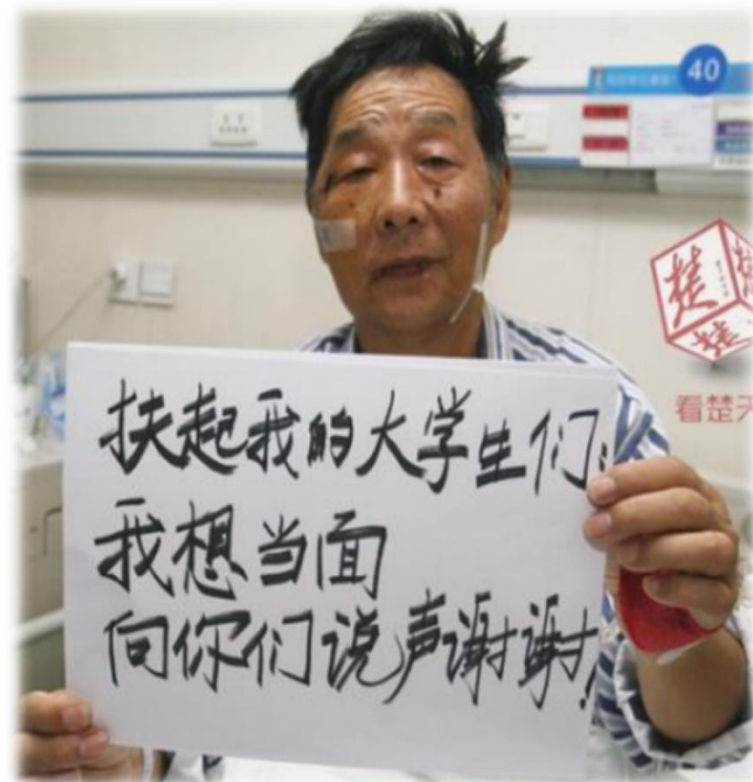 40
楚
看楚天
扶起我的大学生们:
我想当面
向你们说声谢谢!